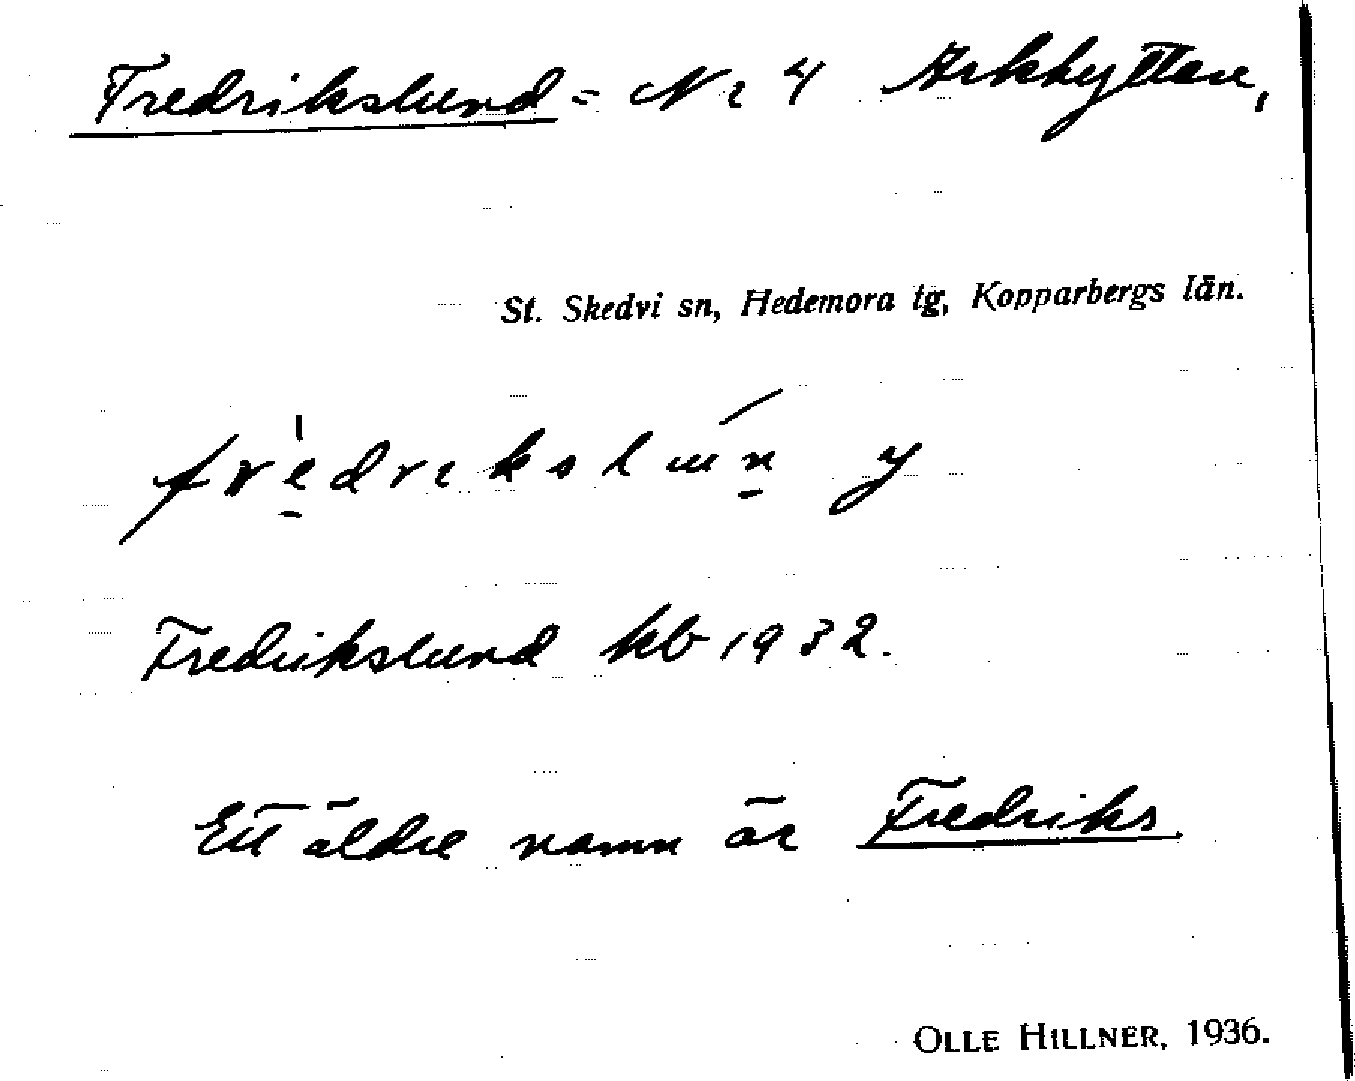 Fredrikslund = Nr 4 Arkhyttan,
St. Skedvi sn, Hedemora tg, Kopparbergs län.
frèdrikslún y
Fredrikslund kb 1932.
Ett äldre namn är Fredriks.
OLLE HILLNER, 1936.